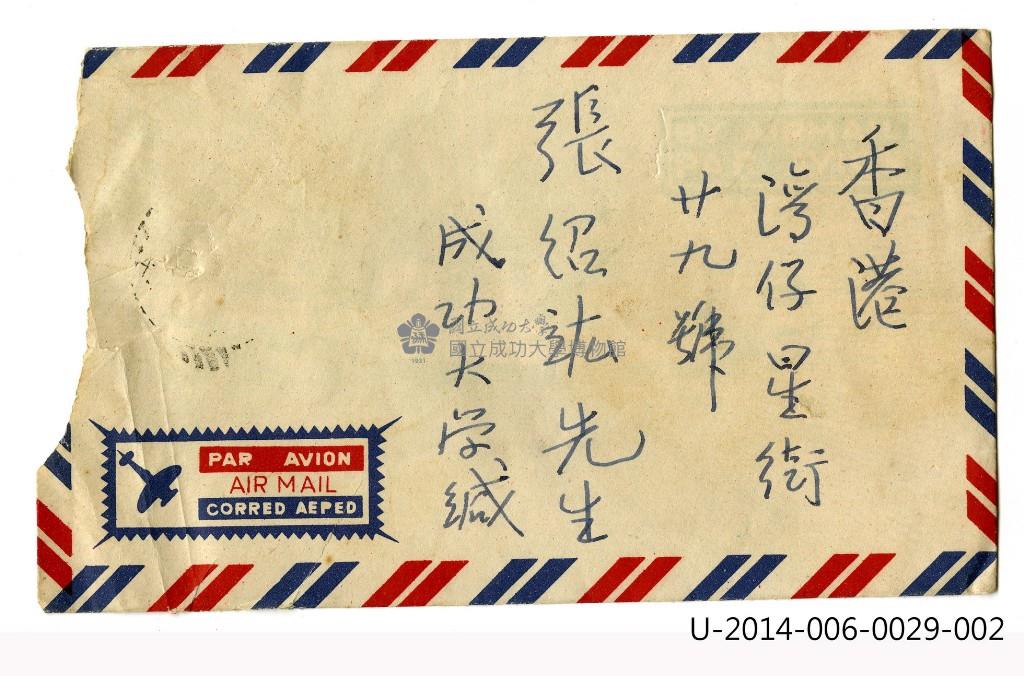 香港
灣仔星街
廿九號
張紹訨先生
成功大学缄
PAR AVION
AIR MAIL
CORRED AEPED
國立成功大學
國立成功大學博物館
1931
U-2014-006-0029-002